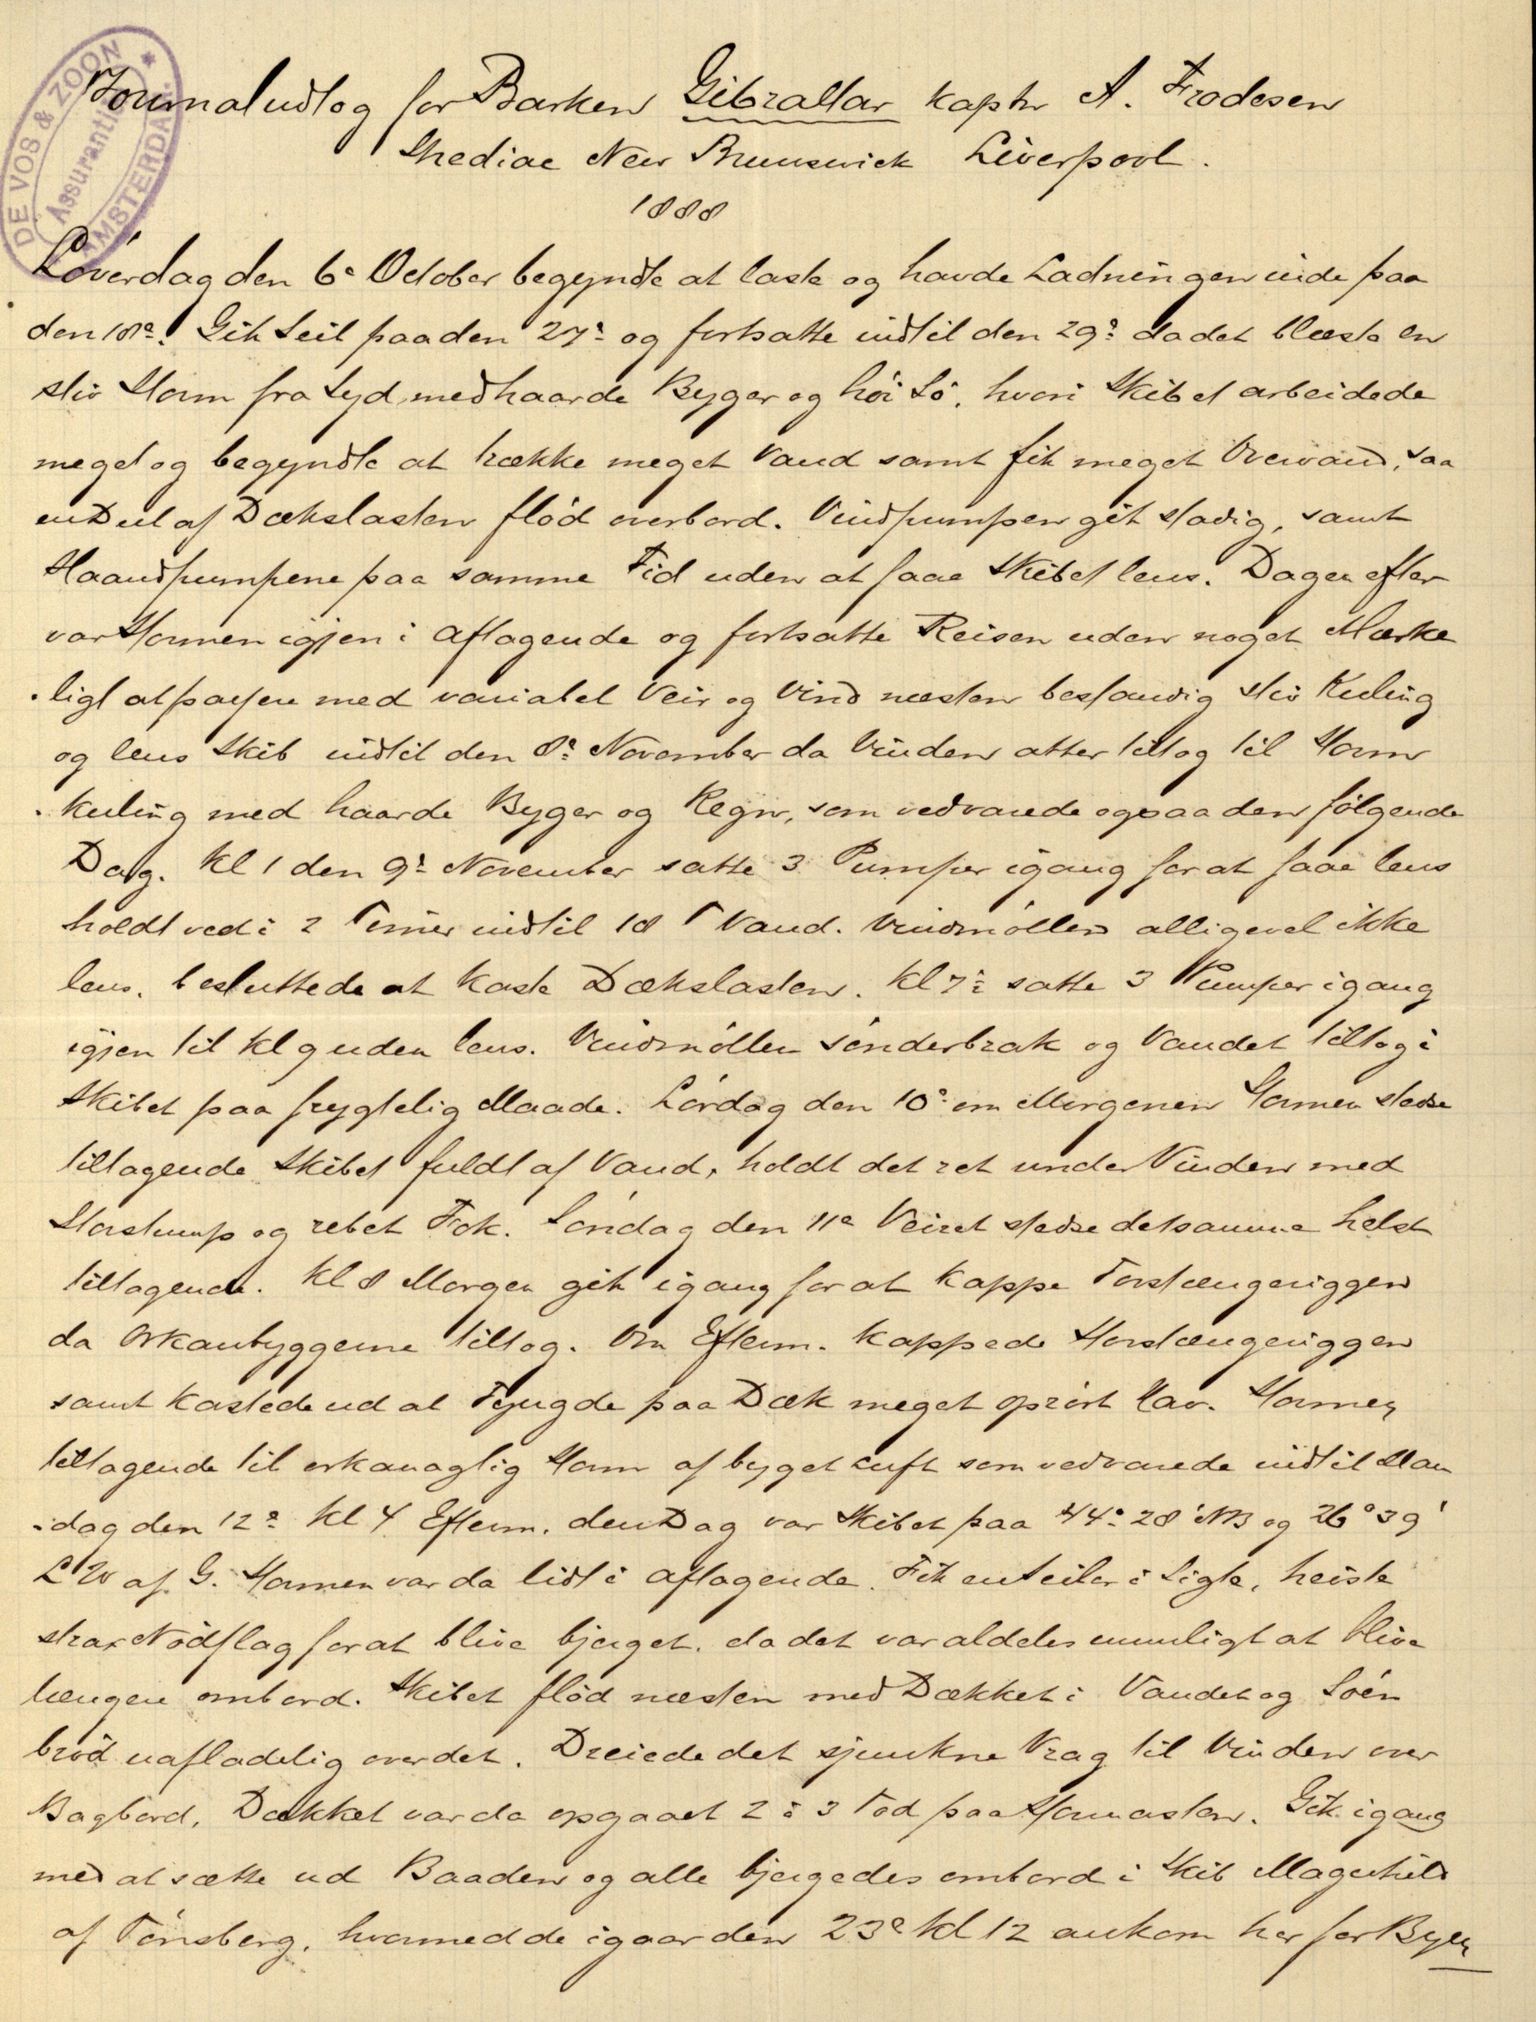 DE VOS & ZOON
Assurantiën
AMSTERDAM
Journaludtog for Barken Gibraltar kaptn A. Frodesen
Shediac New Brunswick Liverpool.
1888
Löverdag den 6e October begyndte at laste og havde Ladningen inde paa
den 18e. Gik Seil paa den 27e og fortsatte indtil den 29e da det blæste en
stiv Storm fra Syd, med haarde Byger og høi Sø, hvori Skibet arbeidede
meget og begyndte at trække meget Vand samt fik meget Overvand, saa
en Deel af Dækslasten flød overbord. Vindpumpen gik stadig, samt
Haandpumpene paa samme Tid uden at faae Skibet lens. Dagen efter
var Stormen igjen i aftagende og fortsatte Reisen uden noget Mærke
ligt at passere med variabel Veir og Vind næsten bestandig stiv Kuling
og lens Skib indtil den 8e November da Vinden atter tiltog til Storm
kuling med haarde Byger og Regn, som vedvarede ogsaa den følgende
Dag. Kl 1 den 9e November satte 3 Pumper igang for at faae lens
holdt ved i 2 Timer indtil 18 " Vand. Vindmøllen alligevel ikke
lens, besluttede at kaste Dækslasten. Kl 7½ satte 3 Pumper igang
igjen til kl 9 uden lens. Vindmøllen sönderbrak og Vandet tiltog i
Skibet paa frygtelig Maade. Lördag den 10e om Morgenen Stormen stedse
tiltagende Skibet fuldt af Vand, holdt det ret under Vinden med
Storstump og rebet Fok. Söndag den 11e Veiret stedse detsamme helst
tiltagende. Kl 8 Morgen gik igang for at kappe Forstængeriggen
da Orkanbyggerne tiltog. Om Efterm. kappede Storstængeriggen
samt kastede ud al Tyngde paa Dæk meget oprört Hav. Stormen
tiltagende til orkanagtig Storm af byget Luft som vedvarede indtil Man
dag den 12e Kl 4 Efterm. den Dag var Skibet paa 44° 28' NB og 26° 39'
L W af G. Stormen var da lidt i aftagende. Fik en Seiler i Sigte, heiste
strax Nödflag for at blive bjerget, da det var aldeles umuligt at blive
længere ombord. Skibet flöd næsten med Dækket i Vandet og Söen
bröd uafladelig over det. Dreiede det sjunkne Vrag til Vinden over
Bagbord, Dækket var da opgaaet 2 à 3 Fod paa Stormasten. Gik igang
med at sætte ud Baaden og alle bjergedes ombord i Skib Magnhild
af Tönsberg, hvormed de igaar den 23e kl 12 ankom her for Byen